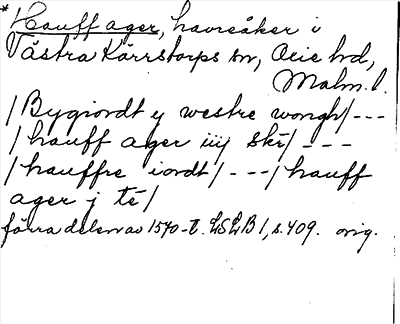 *Hauff ager, havreåker i
Västra Kärrstorps sn, Oxie hd,
Malm. l.
/Bygiordt y westre wongh/---
/hauff ager iiij skr/ ---
/hauffre iordt/ ---/hauff
ager j té/
förra delen av 1570-t. LSLB 1, s. 409. orig.